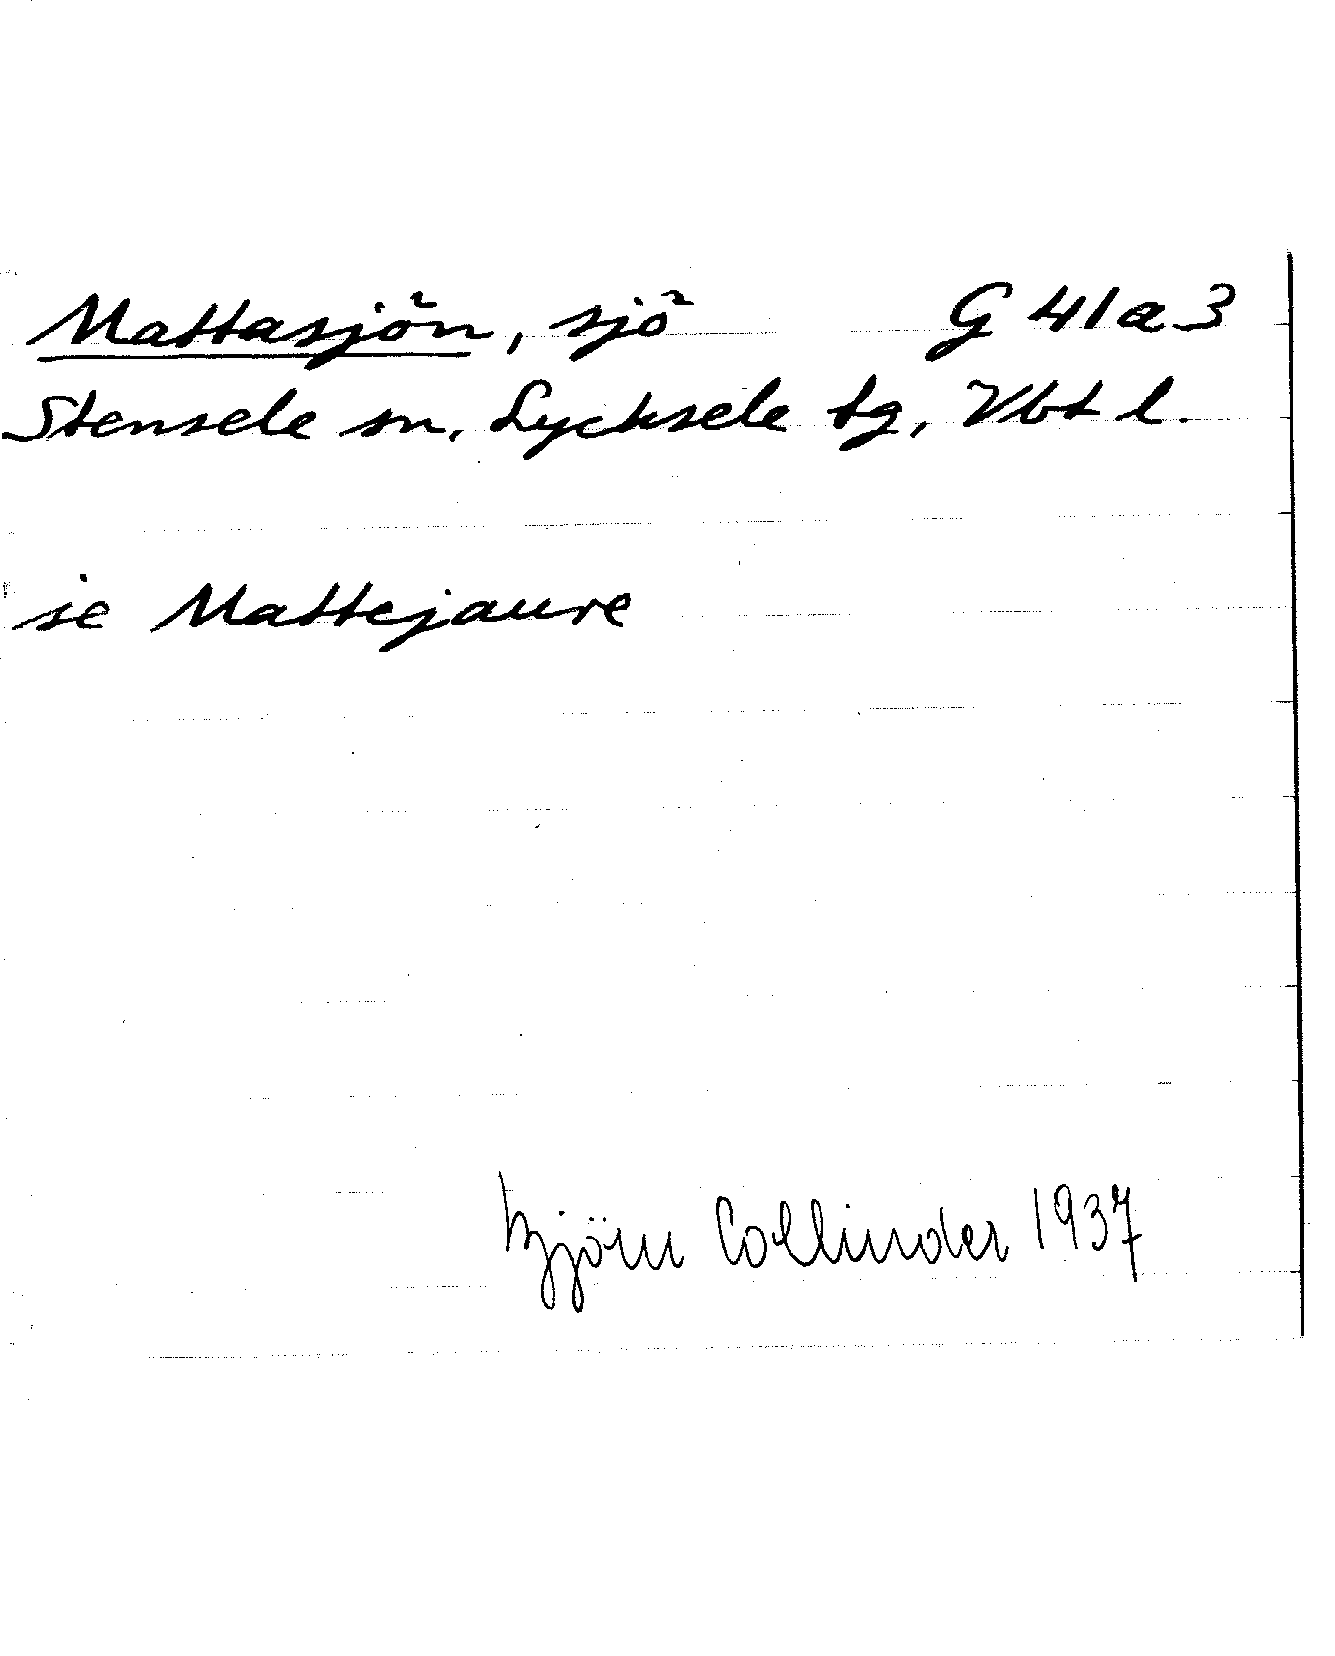 Mattasjön, sjö G 41 a 3
Stensele sn, Lycksele tg, Vbt l.
se Mattejaure
Björn Collinder 1937